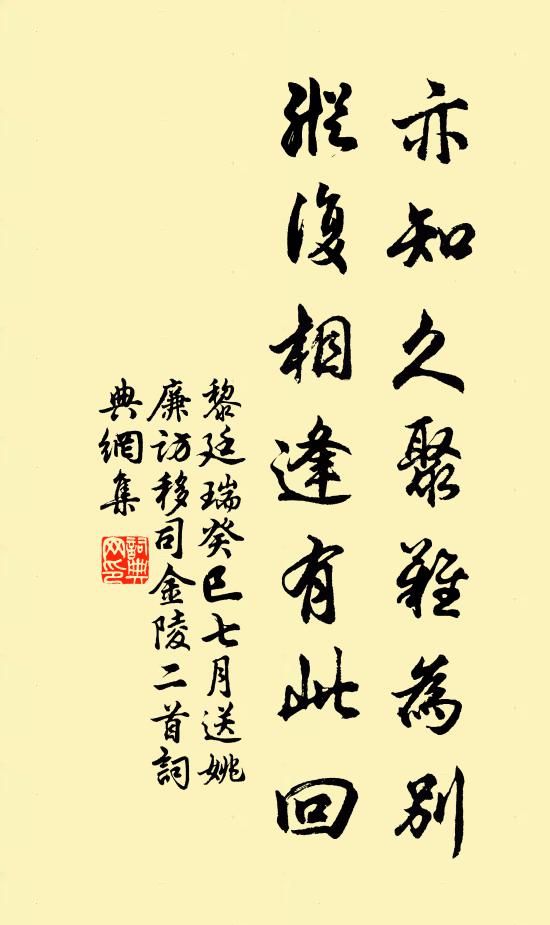 亦知久聚難為別
縱復相逢有此回
黎廷瑞癸巳七月送姚
廉訪移司金陵二首詞
典網集
詞典網印